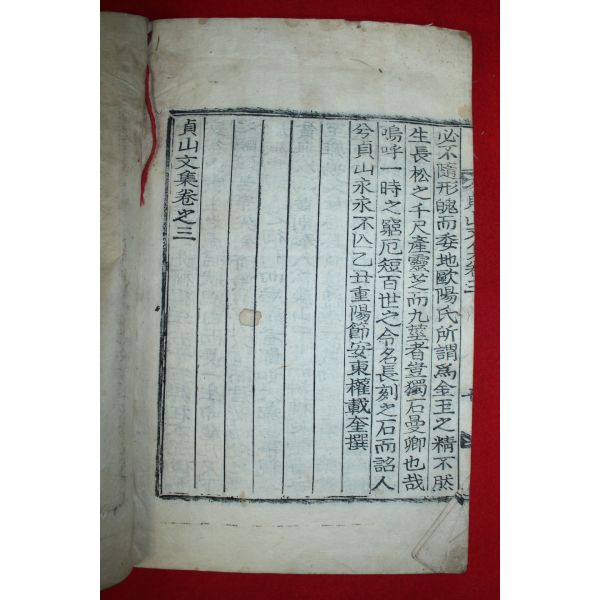 必不隨形魄而委地歐陽氏所謂爲金玉之精不然
生長松之千尺產靈芝而九莖者豈獨石曼卿也哉
嗚呼一時之窮厄短百世之令名長刻之石而詔人
兮貞山永永不㒺乙丑重陽節安東權載奎撰
貞山文集卷之三